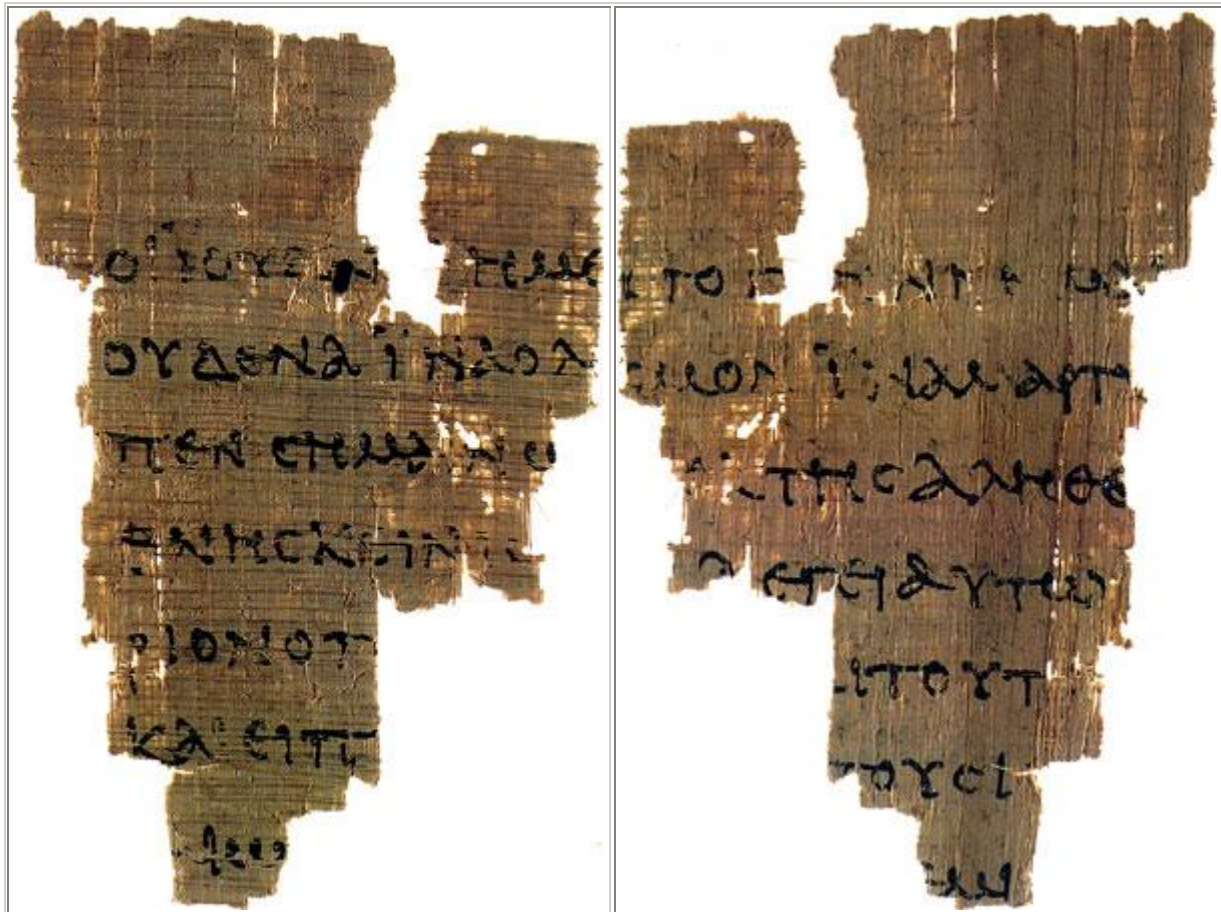 ΟΙ ΪΟΥΔΑΙ ΗΜΕ
ΟΥΔΕΝΑ ΪΝΑ Ο Λ
ΠΕΝ ϹΗΜΑΙΝΩ
ΘΝΗϹΚΕΙΝ ΙϹ
ΡΙΟΝ Ο Π
ΚΑΙ ΕΙΠ
ΤΟ Γ ΕΝΝΗΜΑΙ
ϹΜΟΝ ΪΝΑ ΜΑΡΤΥ
ΤΗϹ ΑΛΗΘΕ
ΛΕΓΕΙ ΑΥΤΩ
ΑΙ ΤΟΥΤ
ΤΟΥϹ Ι
ΜΙ